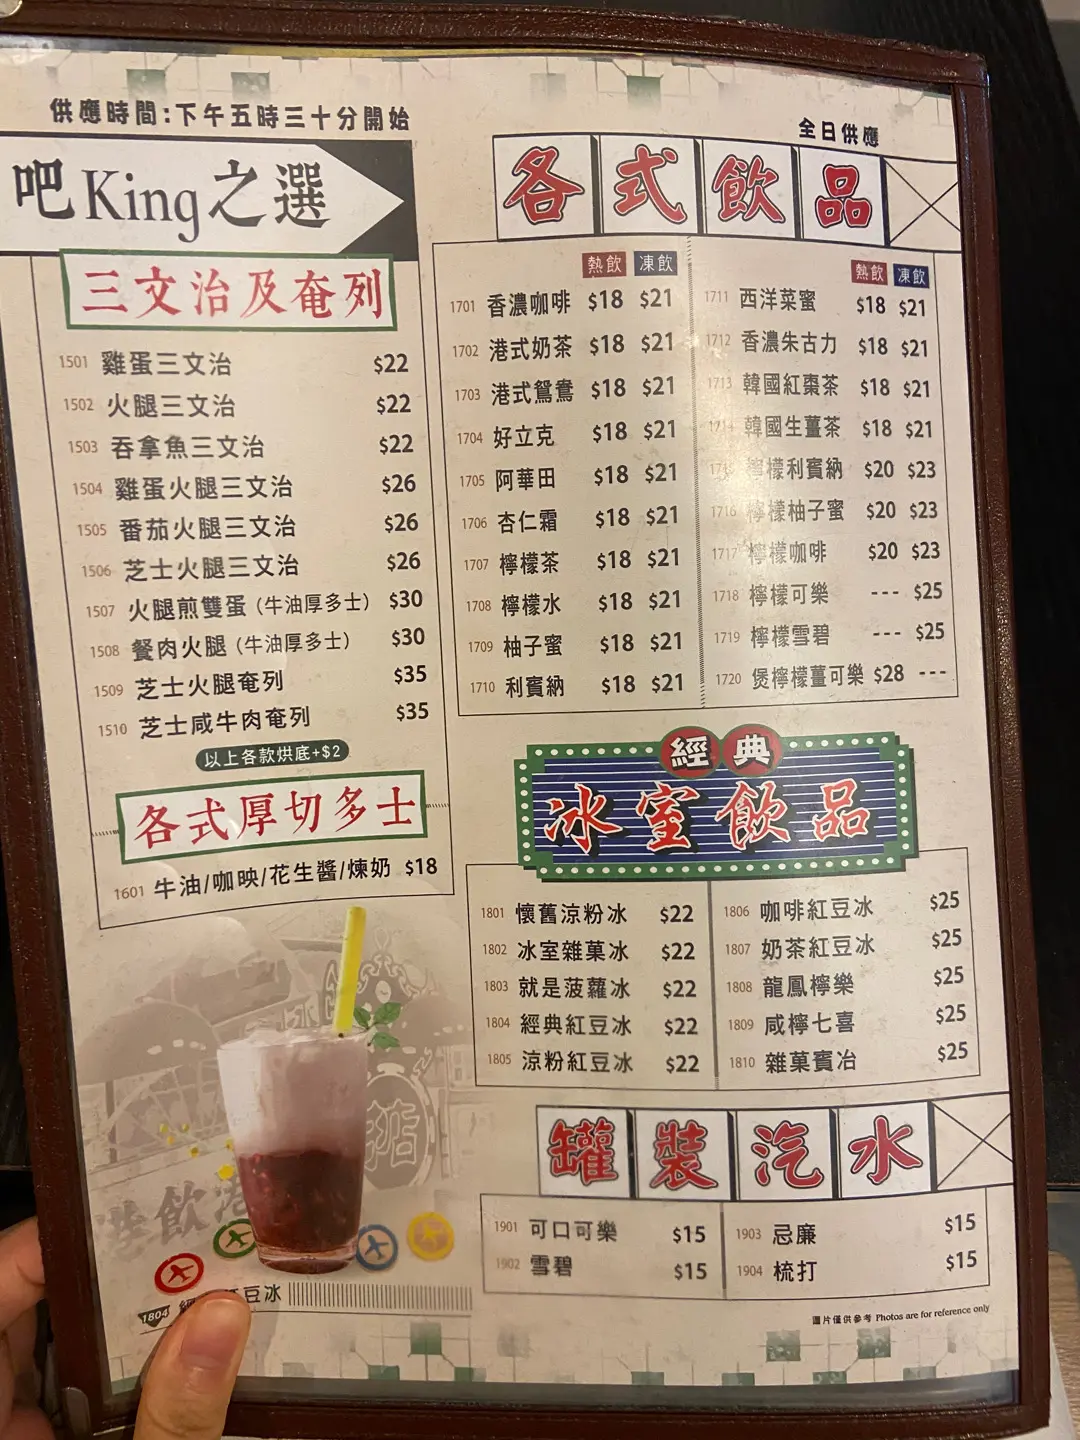 供應時間:下午五時三十分開始
吧King之選
三文治及奄列
1501 雞蛋三文治 $22
1502 火腿三文治 $22
1503 吞拿魚三文治 $22
1504 雞蛋火腿三文治 $26
1505 番茄火腿三文治 $26
1506 芝士火腿三文治 $26
1507 火腿煎雙蛋 (牛油厚多士) $30
1508 餐肉火腿 (牛油厚多士) $30
1509 芝士火腿奄列 $35
1510 芝士咸牛肉奄列 $35
以上各款烘底+$2
各式厚切多士
1601 牛油/咖央/花生醬/煉奶 $18
1804
豆冰
全日供應
各式飲品
熱飲 凍飲
1701 香濃咖啡 $18 $21
1702 港式奶茶 $18 $21
1703 港式鴛鴦 $18 $21
1704 好立克 $18 $21
1705 阿華田 $18 $21
1706 杏仁霜 $18 $21
1707 檸檬茶 $18 $21
1708 檸檬水 $18 $21
1709 柚子蜜 $18 $21
1710 利賓納 $18 $21
熱飲 凍飲
1711 西洋菜蜜 $18 $21
1712 香濃朱古力 $18 $21
1713 韓國紅棗茶 $18 $21
1714 韓國生薑茶 $18 $21
檸檬利賓納 $20 $23
1716 檸檬柚子蜜 $20 $23
1717 檸檬咖啡 $20 $23
1718 檸檬可樂 --- $25
1719 檸檬雪碧 --- $25
1720 煲檸檬薑可樂 $28 ---
經典
冰室飲品
1801 懷舊涼粉冰 $22
1802 冰室雜菓冰 $22
1803 就是菠蘿冰 $22
1804 經典紅豆冰 $22
1805 涼粉紅豆冰 $22
1806 咖啡紅豆冰 $25
1807 奶茶紅豆冰 $25
1808 龍鳳檸樂 $25
1809 咸檸七喜 $25
1810 雜菓賓冶 $25
罐裝汽水
1901 可口可樂 $15
1902 雪碧 $15
1903 忌廉 $15
1904 梳打 $15
圖片僅供參考 Photos are for reference only